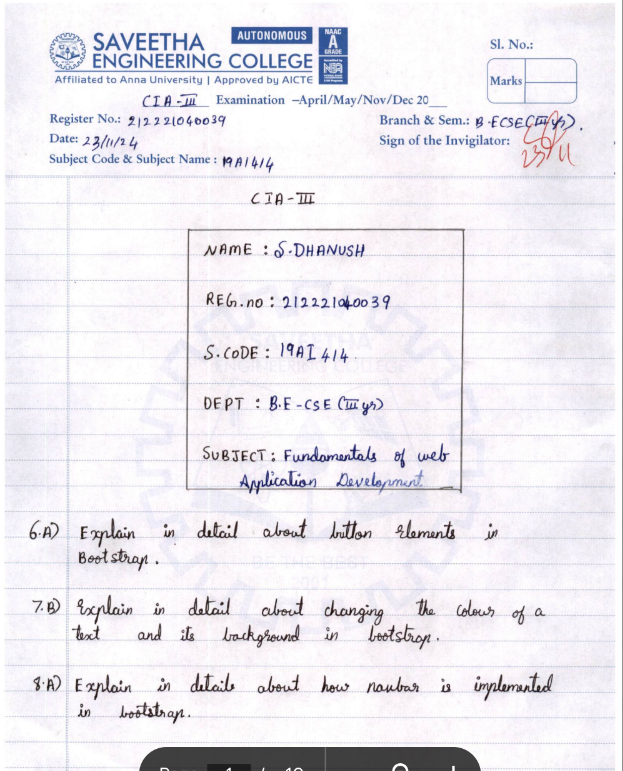 SAVEETHA AUTONOMOUS
ENGINEERING COLLEGE
NAAC A GRADE
Affiliated to Anna University | Approved by AICTE
Sl. No.:
Marks
CIA-III Examination –April/May/Nov/Dec 20
Register No.: 212221040039
Branch & Sem.: B.ECSE(III yr).
Date: 23/11/24
Sign of the Invigilator:
23/11
Subject Code & Subject Name : 19AI414
CIA-III
NAME : S.DHANUSH
REG.no : 212221040039
S.CODE : 19AI414
DEPT : B.E-CSE (III yr)
SUBJECT : Fundamentals of web
Application Development
SAVEETHA
ENGINEERING COLLEGE
2001
6.A) Explain in detail about button elements in
Bootstrap.
7.B) Explain in detail about changing the colour of a
text and its background in bootstrap.
8.A) Explain in details about how navbar is implemented
in bootstrap.